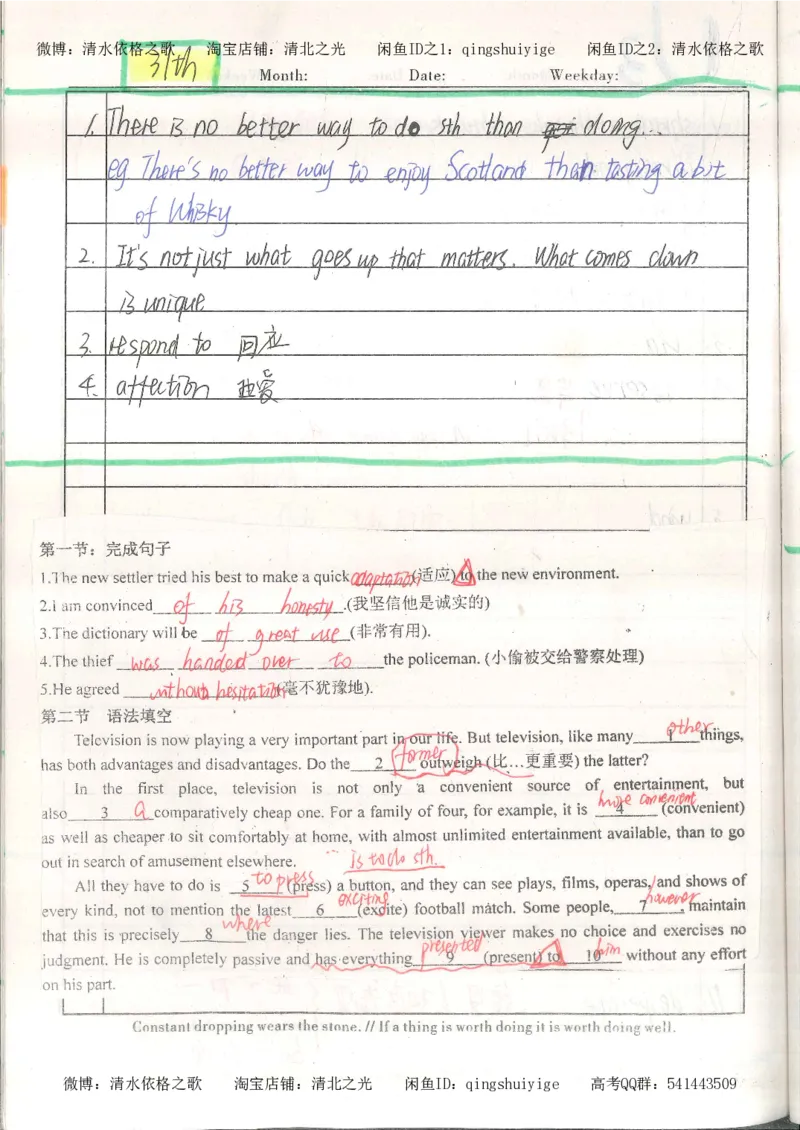 微博：清水依格之歌 淘宝店铺：清北之光 闲鱼ID之1：qingshuiyige 闲鱼ID之2：清水依格之歌
31th
Month: Date: Weekday:
1. There is no better way to do sth than doing...
eg There's no better way to enjoy Scotland than tasting a bit
of Whisky
2. It's not just what goes up that matters. What comes down
is unique
3. respond to 回应
4. affection 喜爱
第一节：完成句子
1.The new settler tried his best to make a quick adaptation (适应) to the new environment.
2.I am convinced of his honesty .(我坚信他是诚实的)
3.The dictionary will be of great use (非常有用).
4.The thief was handed over to the policeman. (小偷被交给警察处理)
5.He agreed without hesitation (毫不犹豫地).
第二节 语法填空
Television is now playing a very important part in our life. But television, like many 1 other things,
has both advantages and disadvantages. Do the 2 former outweigh (比…更重要) the latter?
In the first place, television is not only a convenient source of entertainment, but
also 3 a comparatively cheap one. For a family of four, for example, it is 4 more convenient (convenient)
as well as cheaper to sit comfortably at home, with almost unlimited entertainment available, than to go
out in search of amusement elsewhere. ... is to do sth.
All they have to do is 5 to press (press) a button, and they can see plays, films, operas, and shows of
every kind, not to mention the latest 6 exciting (excite) football match. Some people, 7 however, maintain
that this is precisely 8 where the danger lies. The television viewer makes no choice and exercises no
judgment. He is completely passive and has everything 9 presented (present) to 10 him without any effort
on his part.
Constant dropping wears the stone. // If a thing is worth doing it is worth doing well.
微博：清水依格之歌 淘宝店铺：清北之光 闲鱼ID：qingshuiyige 高考QQ群：541443509